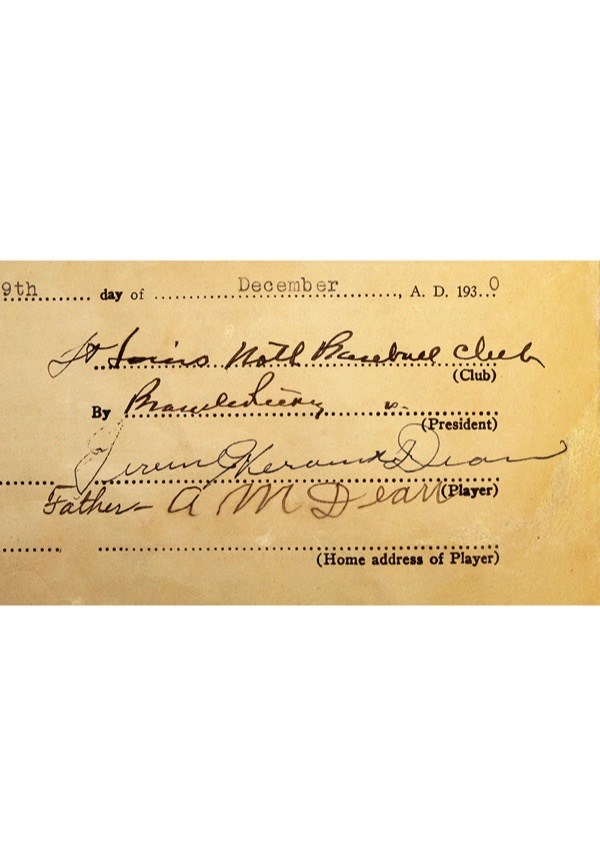 9th........ day of ........December........, A. D. 193...0
St Louis Natl Baseball Club
(Club)
By Branch Rickey v.
(President)
Jerome Herman Dean
Father - A M Dean (Player)
(Home address of Player)